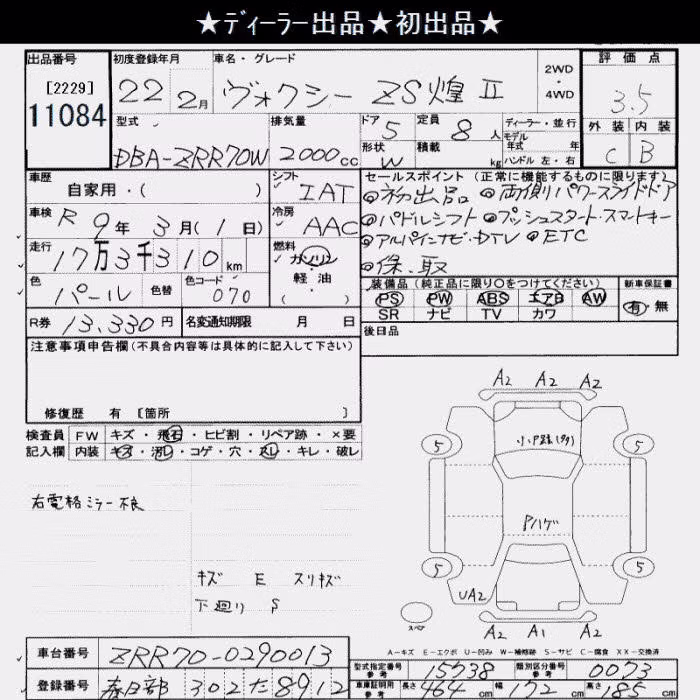 ★ディーラー出品★初出品★
出品番号 初度登録年月 車名・グレード 2WD・4WD 評価点
[2229] 11084 22年2月 ヴォクシー ZS煌Ⅱ 3.5
型式 排気量 ドア 5 定員 8人 ディーラー・並行 外装 内装
DBA-ZRR70W 2000cc 形状 W 積載 kg モデル年式 年 ハンドル 左・右 C B
車歴 自家用・( ) シフト IAT セールスポイント(正常に機能するものに限ります)
◎初出品 ◎両側パワースライドドア
車検 R 9年3月(1日) 冷房 AAC ◎パドルシフト ◎プッシュスタート・スマートキー
走行 17万3千310km 燃料 ガソリン ◎アルパインナビ・DTV ◎ETC
軽油 ( ・ ) ◎保.取
色 パール 色替 色コード 070 装備品(純正品に限り○をつけてください) 新車保証書
PS PW ABS エアB AW 有・無
R券 13,330円 名変通知期限 月 日 SR ナビ TV カワ
注意事項申告欄(不具合内容等は具体的に記入して下さい) 後日品
修復歴 有 [箇所 ]
検査員 FW キズ・飛石・ヒビ割・リペア跡・×要
記入欄 内装 キズ・汚レ・コゲ・穴・スレ・キレ・破レ
右電格ミラー不良
キズ E スリキズ
下廻り S
A2 A2 A2
5 リペア跡(多) 5
Pハゲ
5 5
UA2
スペア A2 A1 A2
A-キズ E-エクボ U-凹み W-補修跡 S-サビ C-腐食 XX-交換済
車台番号 ZRR70-0290013 型式指定番号 参考 15738 類別区分番号 参考 0073
登録番号 春日部 302 た 8912 車庫証明用 参考 長さ 464cm 幅 172cm 高さ 185cm